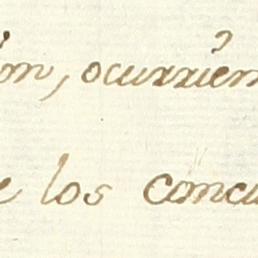 ion, ocurrièn
e los concu